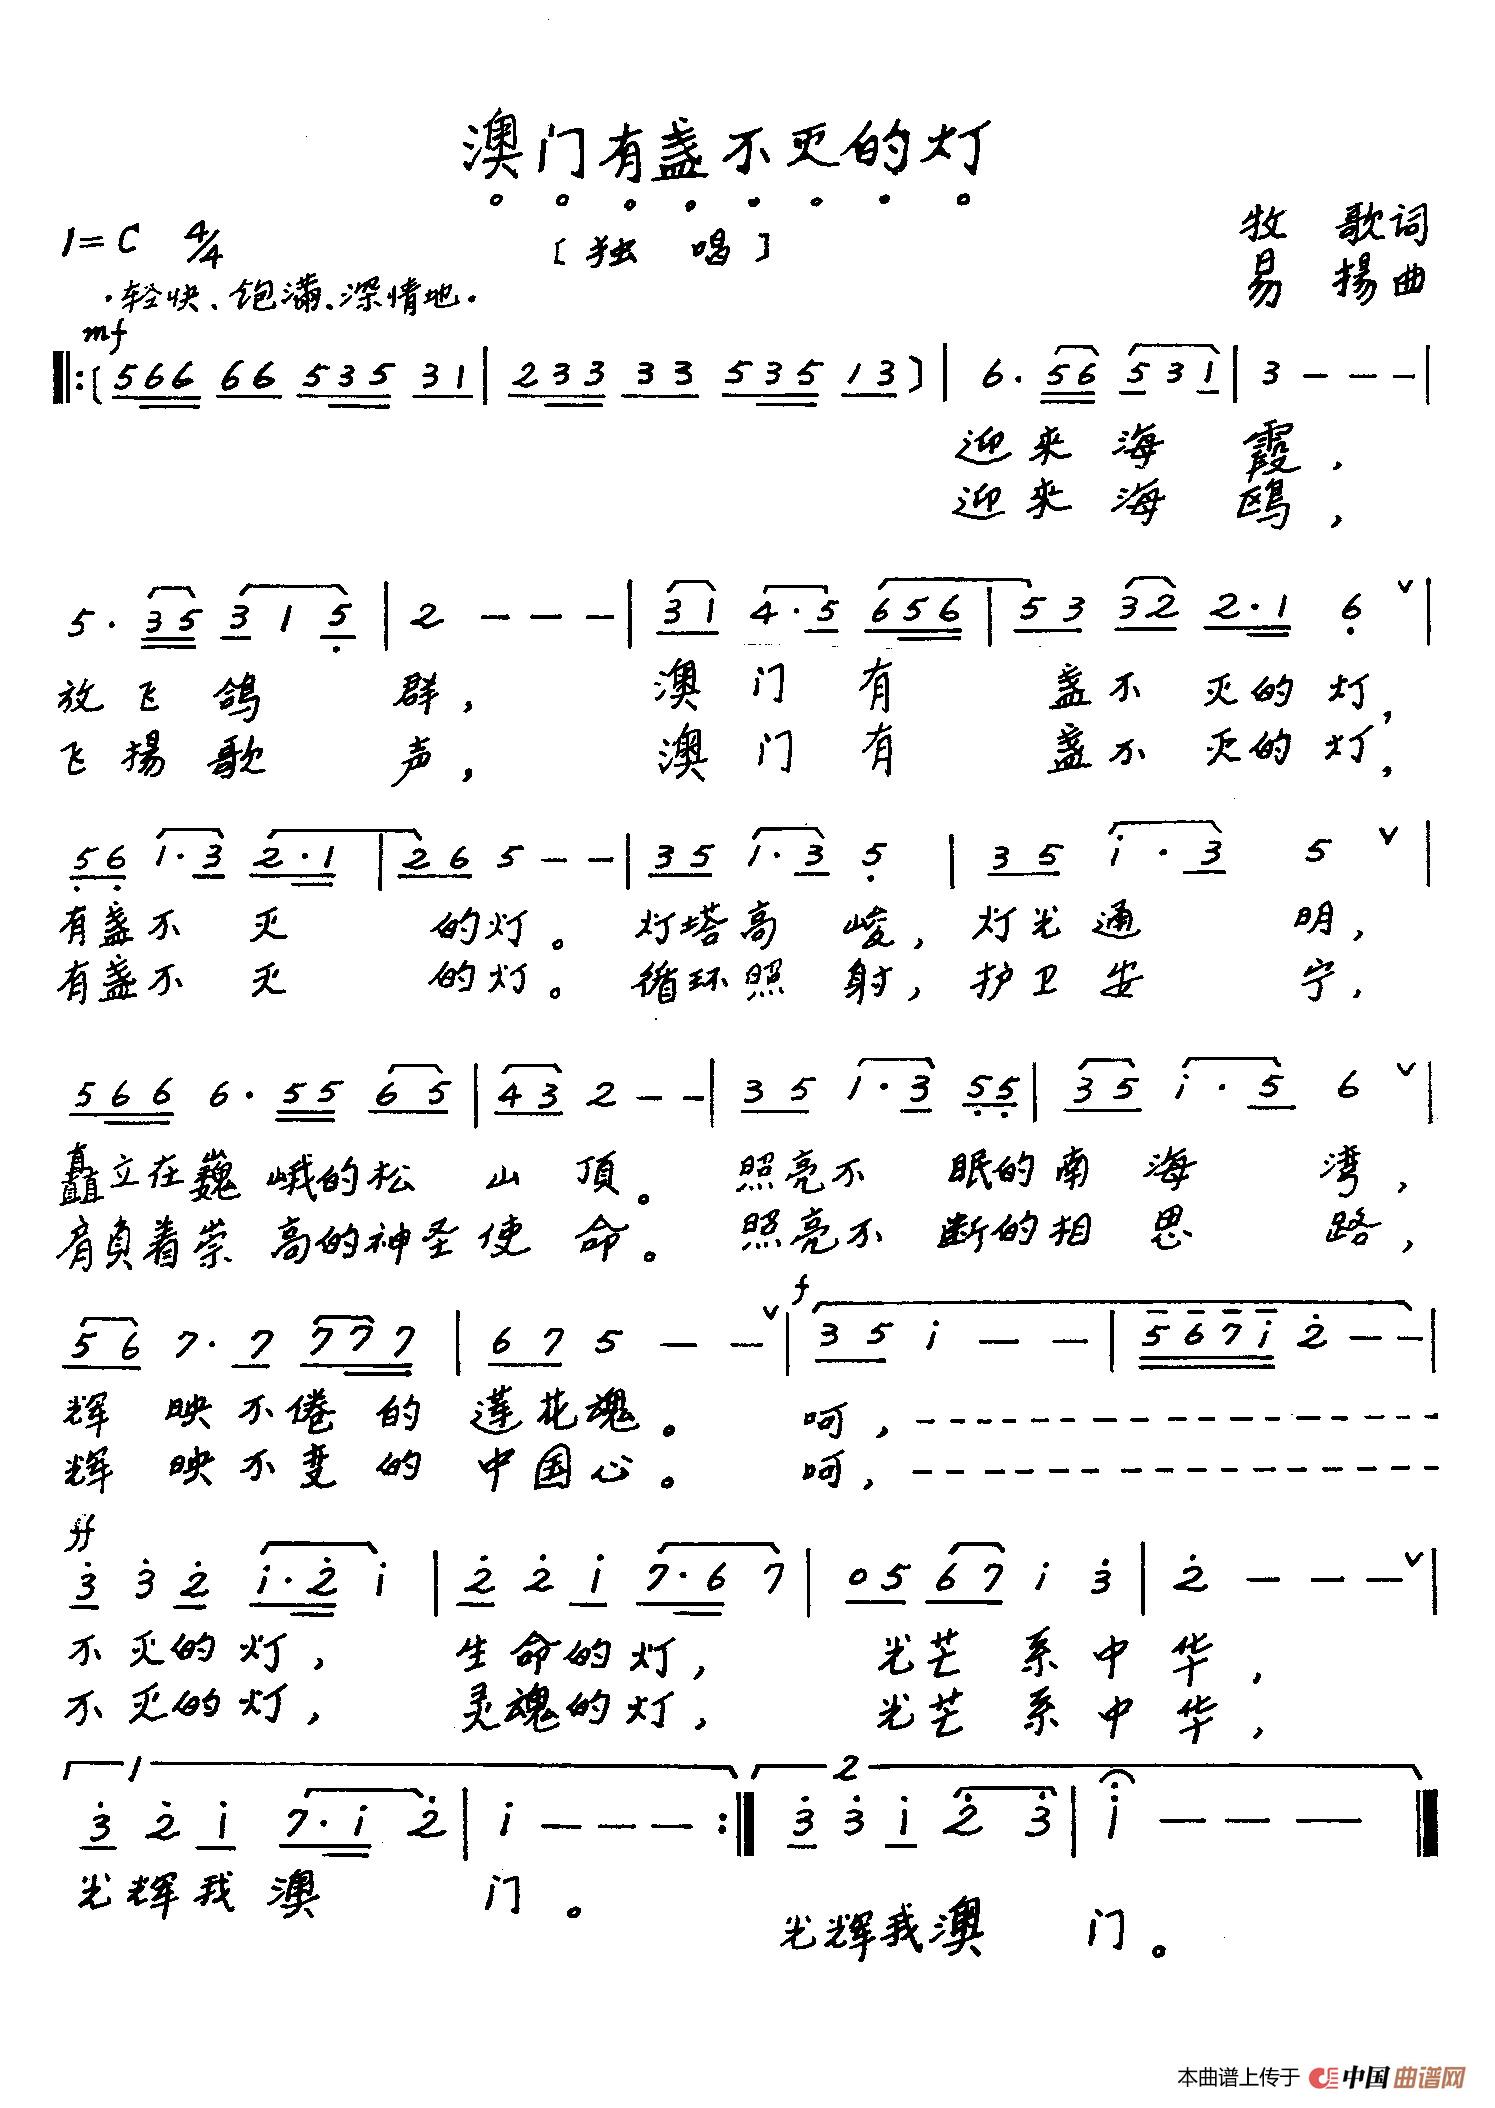 澳门有盏不灭的灯
1=C 4/4
[独 唱]
牧 歌词
易 揚曲
·轻快、饱满、深情地·
mf
‖:(566 66 535 31 | 233 33 535 13) | 6·56 531 | 3 - - - |
迎来海霞,
迎来海鸥,
5·35 3 1 5 | 2 - - - | 31 4·5 656 | 53 32 2·1 6 ∨ |
放飞鸽群, 澳门有 盏不灭的灯,
飞揚歌声, 澳门有 盏不灭的灯,
56 1·3 2·1 | 26 5 - - | 35 1·3 5 | 35 i·3 5 ∨ |
有盏不灭 的灯。 灯塔高峻, 灯光通明,
有盏不灭 的灯。 循环照射, 护卫安宁,
566 6·55 65 | 43 2 - - | 35 1·3 55 | 35 i·5 6 ∨ |
矗立在巍峨的松山顶。 照亮不眠的南海湾,
肩负着崇高的神圣使命。 照亮不断的相思路,
f
56 7·7 777 | 67 5 - - ∨ | 35 i - - | 567i 2 - - |
辉映不倦的莲花魂。 呵, - - - - - - - - - - - - - - -
辉映不变的中国心。 呵, - - - - - - - - - - - - - - -
ff
3 3 2 i·2 i | 2 2 i 7·6 7 | 05 67 i 3 | 2 - - - ∨ |
不灭的灯, 生命的灯, 光芒系中华,
不灭的灯, 灵魂的灯, 光芒系中华,
1 2
3 2 i 7·i 2 | i - - - :‖ 3 3 i 2 3 | i - - - ‖
光辉我澳门。
光辉我澳门。
本曲谱上传于 中国曲谱网